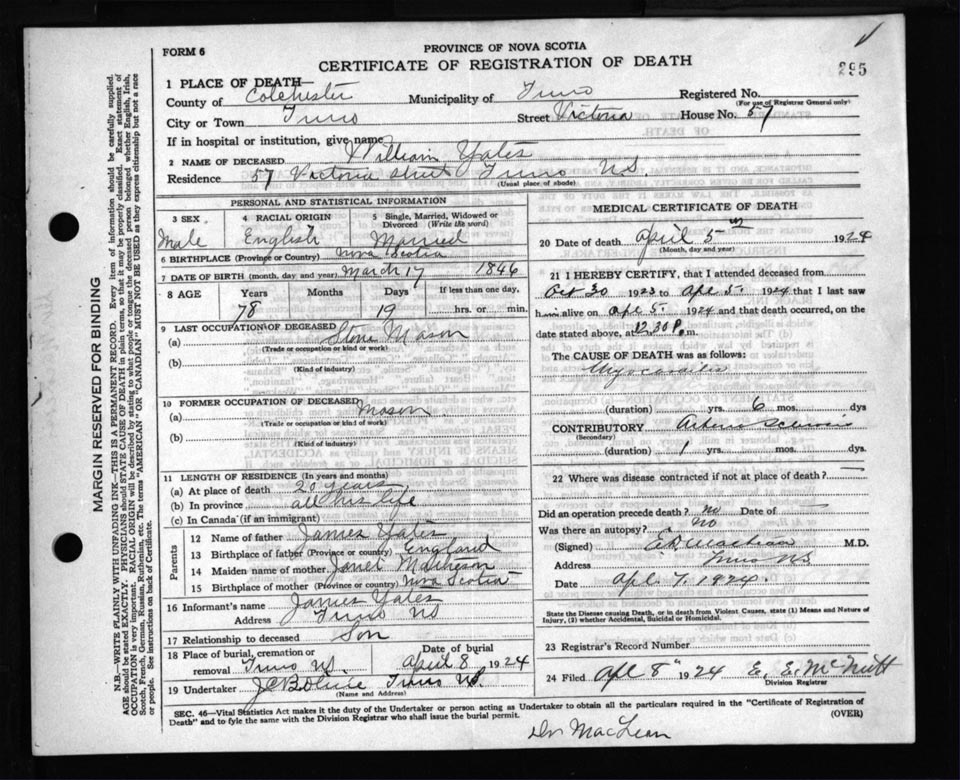 FORM 6
PROVINCE OF NOVA SCOTIA
CERTIFICATE OF REGISTRATION OF DEATH
295
1 PLACE OF DEATH—
County of Colchester Municipality of Truro Registered No.
(For use of Registrar General only)
City or Town Truro Street Victoria House No. 57
If in hospital or institution, give name
2 NAME OF DECEASED William Yates
Residence 57 Victoria Street Truro N.S.
(Usual place of abode)
PERSONAL AND STATISTICAL INFORMATION
3 SEX 4 RACIAL ORIGIN 5 Single, Married, Widowed or Divorced (Write the word)
Male English Married
6 BIRTHPLACE (Province or Country) Nova Scotia
7 DATE OF BIRTH (month, day, and year) March 17 1846
8 AGE Years Months Days If less than one day,
78 19 hrs. or min.
9 LAST OCCUPATION OF DECEASED
(a) Stone Mason
(Trade or occupation or kind or work)
(b)
(Kind of industry)
10 FORMER OCCUPATION OF DECEASED
(a) Mason
(Trade or occupation or kind or work)
(b)
(Kind of industry)
11 LENGTH OF RESIDENCE (In years and months)
(a) At place of death 20 years
(b) In province all his life
(c) In Canada (if an immigrant)
Parents
12 Name of father James Yates
13 Birthplace of father (Province or country) England
14 Maiden name of mother Janet Matheson
15 Birthplace of mother (Province or country) Nova Scotia
16 Informant's name James Yates
Address Truro NS
17 Relationship to deceased Son
18 Place of burial, cremation or removal Truro NS. Date of burial April 8 1924
19 Undertaker Truro NS.
(Name and Address)
MEDICAL CERTIFICATE OF DEATH
20 Date of death April 5th 1924
(Month, day and year)
21 I HEREBY CERTIFY, that I attended deceased from
Oct 30 1923 to Apl 5. 1924 that I last saw
him alive on Apl 5. 1924 and that death occurred, on the
date stated above, at 12.30 P.m.
The CAUSE OF DEATH was as follows:
Myocarditis
(duration) yrs. 6 mos. dys
CONTRIBUTORY Arterio Sclerosis
(Secondary)
(duration) 1 yrs. mos. dys
22 Where was disease contracted if not at place of death?
Did an operation precede death? no Date of
Was there an autopsy? No
(Signed) M.D.
Address Truro NS.
Date Apl 7. 1924.
State the Disease causing Death, or in death from Violent Causes, state (1) Means and Nature of
Injury, (2) whether Accidental, Suicidal or Homicidal.
23 Registrar's Record Number
24 Filed Apl 8" 1924 E. E. McNutt
Division Registrar
SEC. 46—Vital Statistics Act makes it the duty of the Undertaker or person acting as Undertaker to obtain all the particulars required in the "Certificate of Registration of
Death" and to fyle the same with the Division Registrar who shall issue the burial permit. (OVER)
Dr MacLean
MARGIN RESERVED FOR BINDING
N.B.—WRITE PLAINLY WITH UNFADING INK—THIS IS A PERMANENT RECORD. Every item of information should be carefully supplied.
AGE should be stated EXACTLY. PHYSICIANS should STATE CAUSE OF DEATH in plain terms, so that it may be properly classified. Exact statement of
OCCUPATION is very important. RACIAL ORIGIN will be described by stating to what people or tongue the deceased person belonged whether English, Irish,
Scotch, French, German, Russian, Ruthenian, etc. The terms "AMERICAN" OR "CANADIAN" MUST NOT BE USED as they express citizenship but not a race
or people. See instructions on back of Certificate.